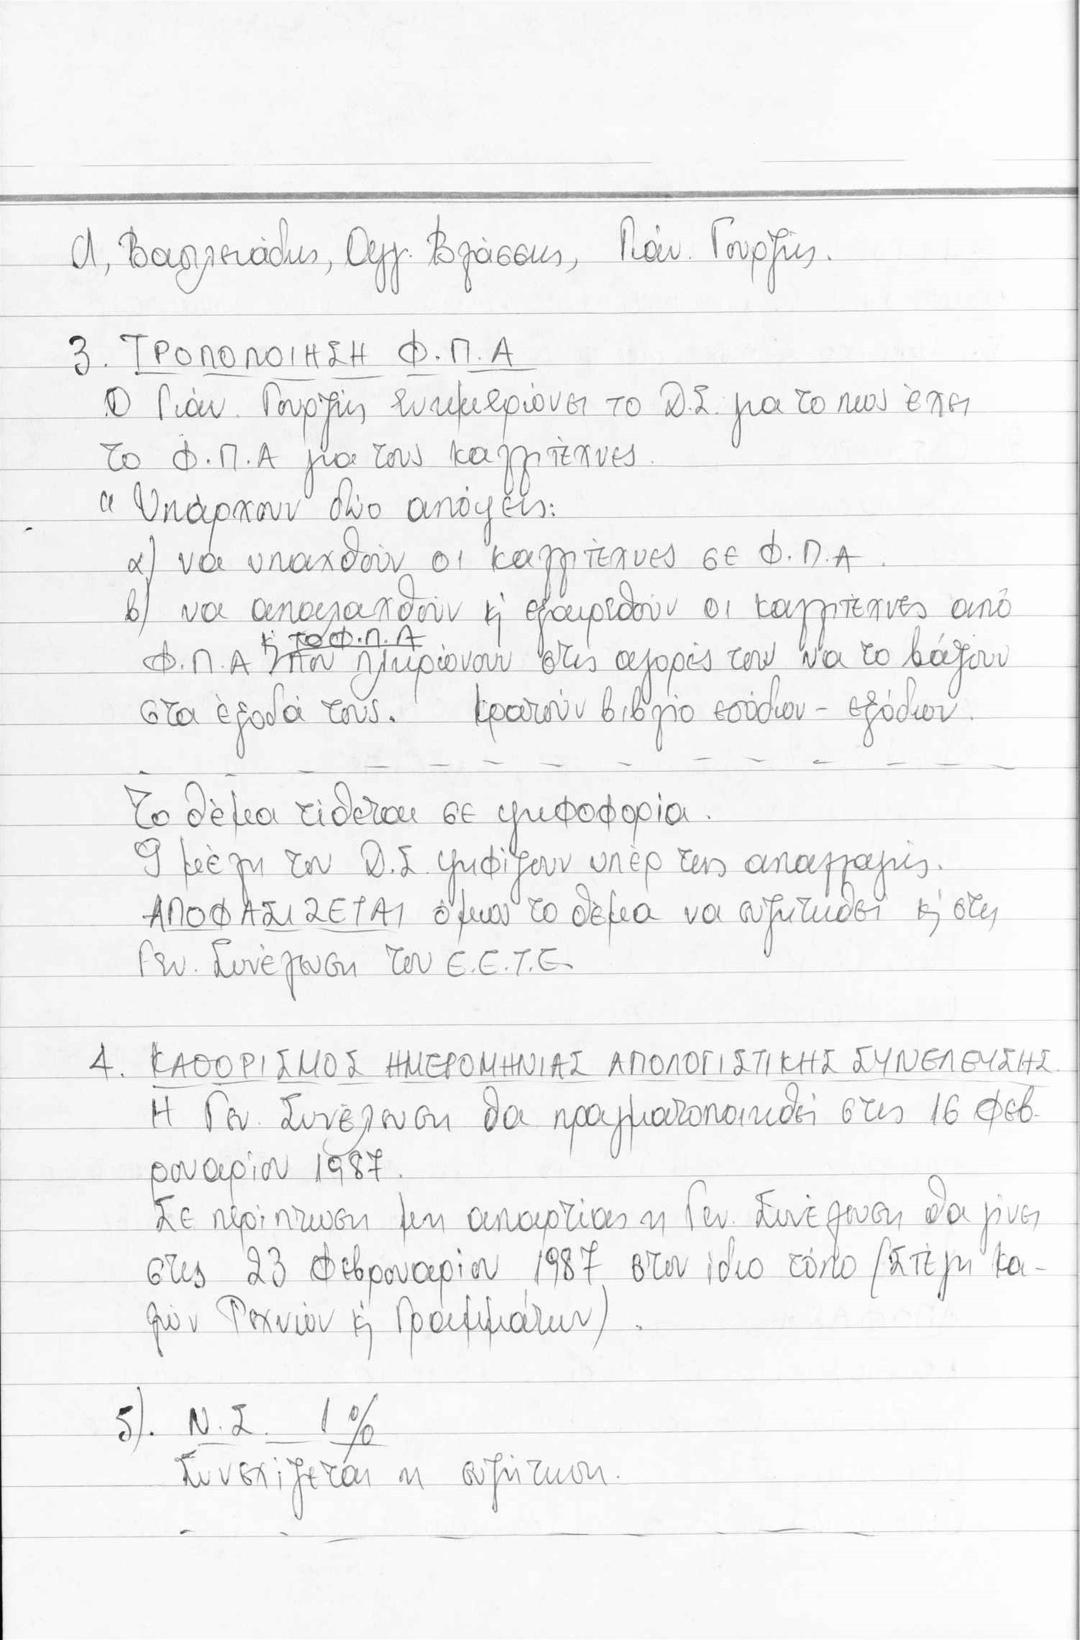 Α, Βασιλειάδης, Αγγ. Βλάσσης, Γιάν. Γουρζής.
3. ΤΡΟΠΟΠΟΙΗΣΗ Φ.Π.Α
Ο Γιάν. Γουρζής ενημερώνει το Δ.Σ. για το πως έχει
το Φ.Π.Α για τους καλλιτέχνες.
Υπάρχουν δύο απόψεις:
α) να υπαχθούν οι καλλιτέχνες σε Φ.Π.Α.
β) να απαλαχθούν ή εξαιρεθούν οι καλλιτέχνες από
κ' το Φ.Π.Α
Φ.Π.Α που πληρώνουν στις αγορές των να το βάζουν
στα έξοδά τους. Κρατούν βιβλίο εσόδων - εξόδων.
Το θέμα τίθεται σε ψηφοφορία.
9 μέλη του Δ.Σ. ψηφίζουν υπέρ της απαλλαγής.
ΑΠΟΦΑΣΙΖΕΤΑΙ όμως το θέμα να συζητηθεί κ' στη
Γεν. Συνέλευση του Ε.Ε.Τ.Ε.
4. ΚΑΘΟΡΙΣΜΟΣ ΗΜΕΡΟΜΗΝΙΑΣ ΑΠΟΛΟΓΙΣΤΙΚΗΣ ΣΥΝΕΛΕΥΣΗΣ.
Η Γεν. Συνέλευση θα πραγματοποιηθεί στις 16 Φεβ-
ρουαρίου 1987.
Σε περίπτωση μη απαρτίας η Γεν. Συνέλευση θα γίνει
στις 23 Φεβρουαρίου 1987 στον ίδιο τόπο (Στέγη Κα-
λών Τεχνών κ' Γραμμάτων).
5). Ν.Σ. 1%
Συνεχίζεται η συζήτηση.